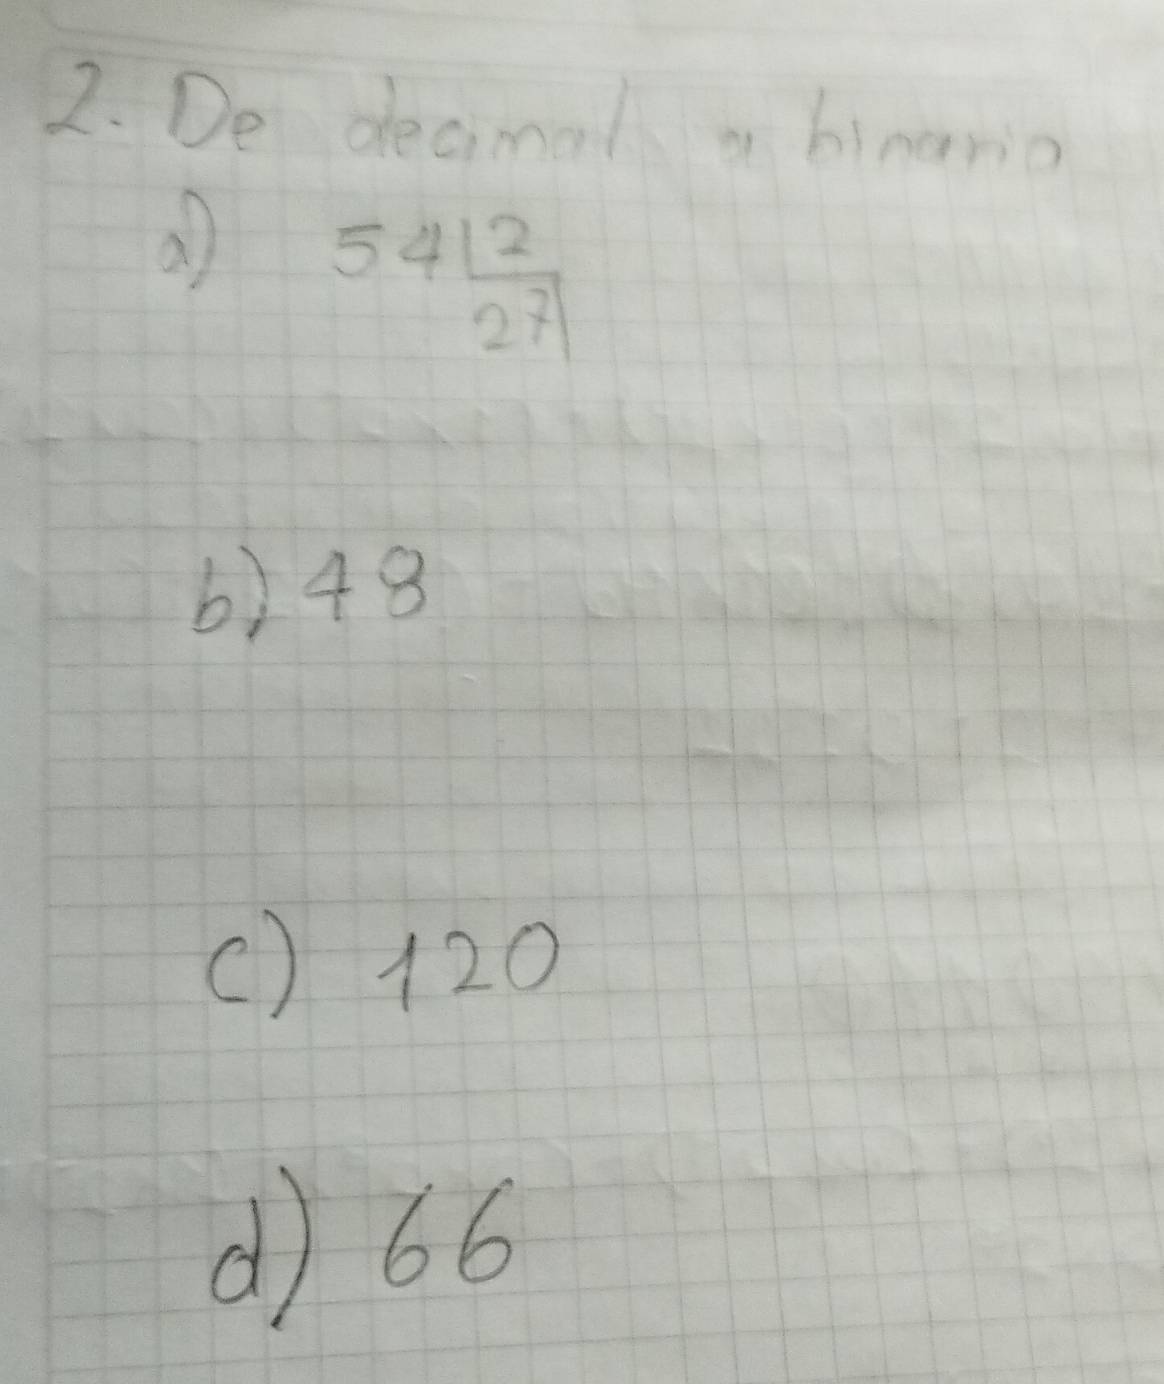 2. De decimal a binario
a) 54 2
27
b) 48
c) 120
d) 66